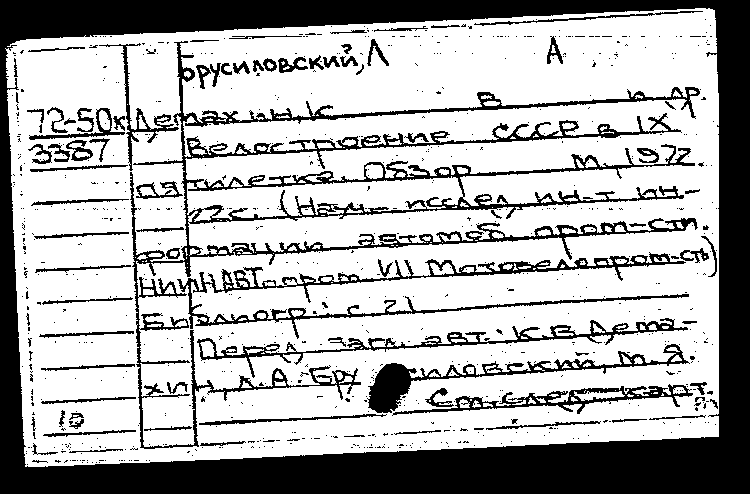 Брусиловский, Л А
72-50к Демахин, К В и др.
3387 Велостроение СССР в IX
пятилетке. Обзор М., 1972.
22с. (Науч.-исслед. ин-т ин-
формации автомоб. пром-сти.
НИИНАВТопром VII Мотовелопром-сть)
Библиогр.: с 21
Перед загл. авт.: К.В Дема-
хин, Л. А. Брусиловский, М. Я.
См. след. карт.
10